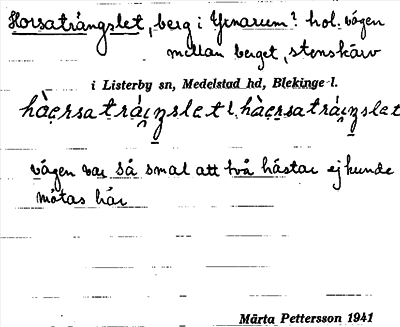 Horsaträngslet, berg i Yxnarum? hol. vägen
mellan berget, stenskärv
i Listerby sn, Medelstad hd, Blekinge l.
vägen var så smal att två hästar ej kunde
mötas här
Märta Pettersson 1941